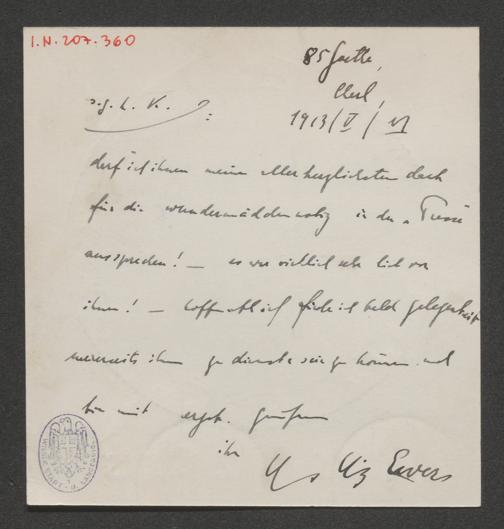 I.N. 207.360
85 Goethe,
1913/V/
s. g. h. K. :
darf ich ihnen meinen allerherzlichsten dank
für die wundermädchennotiz in der „Presse
aussprechen! — es war wirklich sehr lieb von
ihnen! — hoffentlich finde ich bald gelegenheit
meinerseits ihnen zu dienste sein zu können und
bin mit ergeb. grüßen
ihr
Hns Hz Ewers